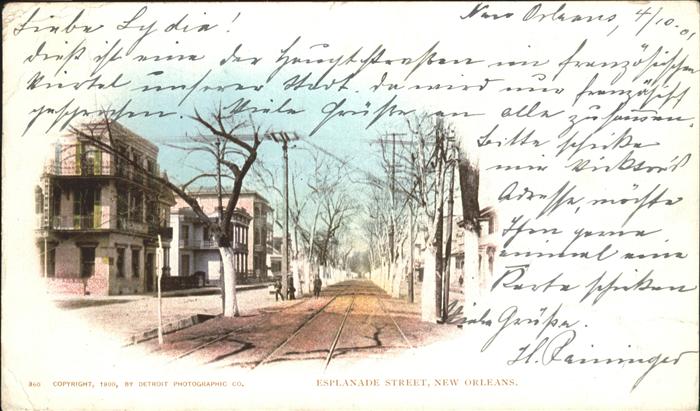 New Orleans, 4/10.-01.
Liebe Lydia!
Dieß ist eine der Hauptstraßen im französischen
Viertel unserer Stadt. da wird nur französisch
gesprochen. Viele Grüße an alle zusammen.
Bitte schicke
mir Viktor's
Adresse, möchte
Ihm gerne
einmal eine
Karte schicken
Viele Grüße.
H.
360 COPYRIGHT, 1900, BY DETROIT PHOTOGRAPHIC CO.
ESPLANADE STREET, NEW ORLEANS.